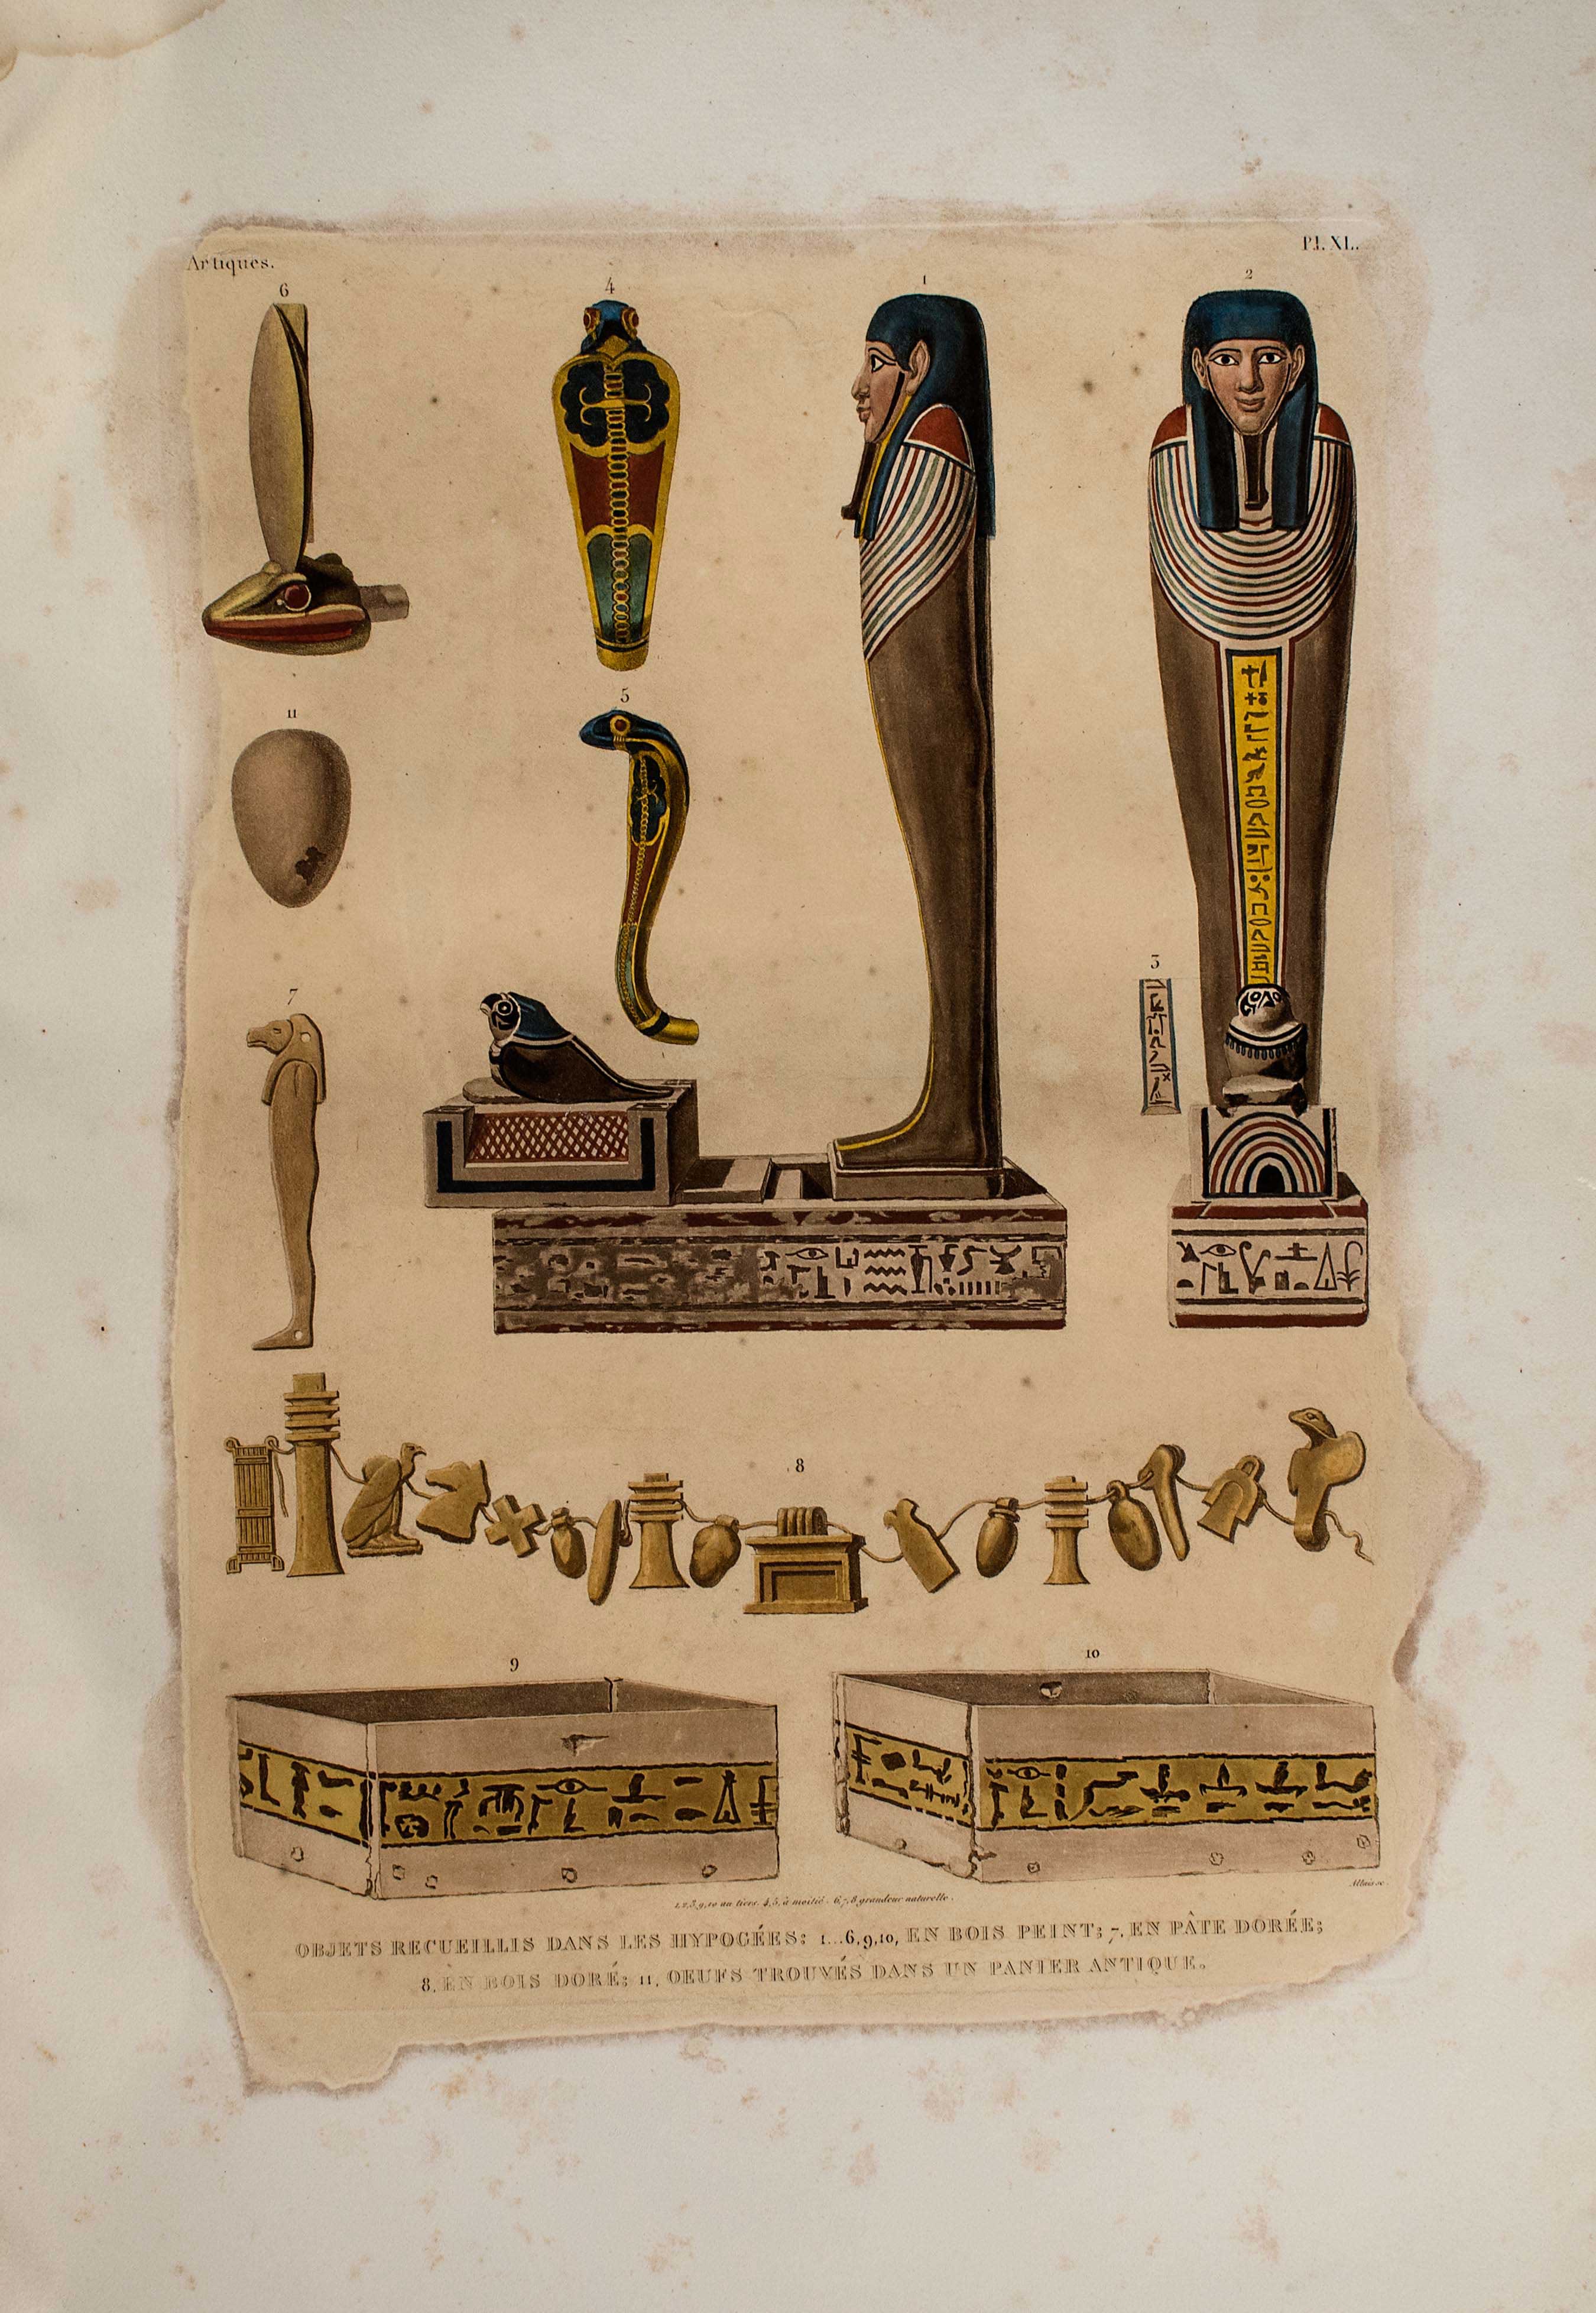 Antiques.
Pl. XL.
6
4
1
2
5
11
3
7
8
9
10
1,2,3,9,10 au tiers. 4,5, à moitié. 6,7,8, grandeur naturelle.
OBJETS RECUEILLIS DANS LES HYPOGÉES: 1...6,9,10, EN BOIS PEINT; 7, EN PÂTE DORÉE;
8, EN BOIS DORÉ; 11, OEUFS TROUVÉS DANS UN PANIER ANTIQUE.